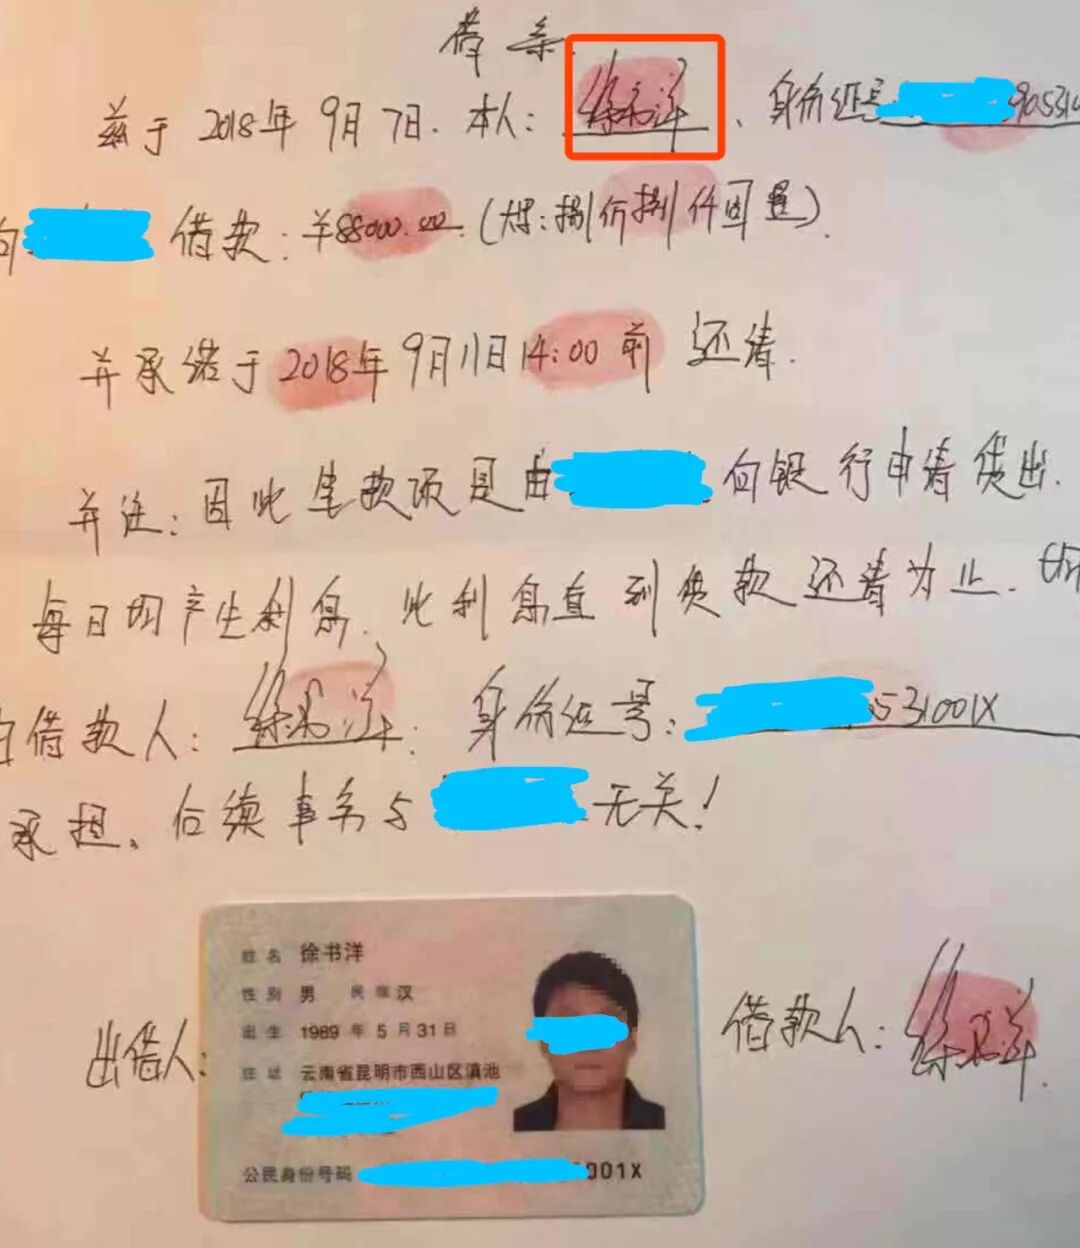 借条
兹于2018年9月7日.本人:徐书洋、身份证号905310
向 借款:¥88000.00(大写:捌仟捌仟圆整).
并承诺于2018年9月11日14:00前还清.
并注:因此笔款项是由 向银行申请贷出.
每日均产生利息.此利息直到贷款还清为止.
由借款人:徐书洋.身份证号:531001X
承担.后续事务与 无关!
姓名 徐书洋
性别 男 民族 汉
出生 1989年5月31日
住址 云南省昆明市西山区滇池
公民身份号码 001X
出借人:
借款人:徐书洋.